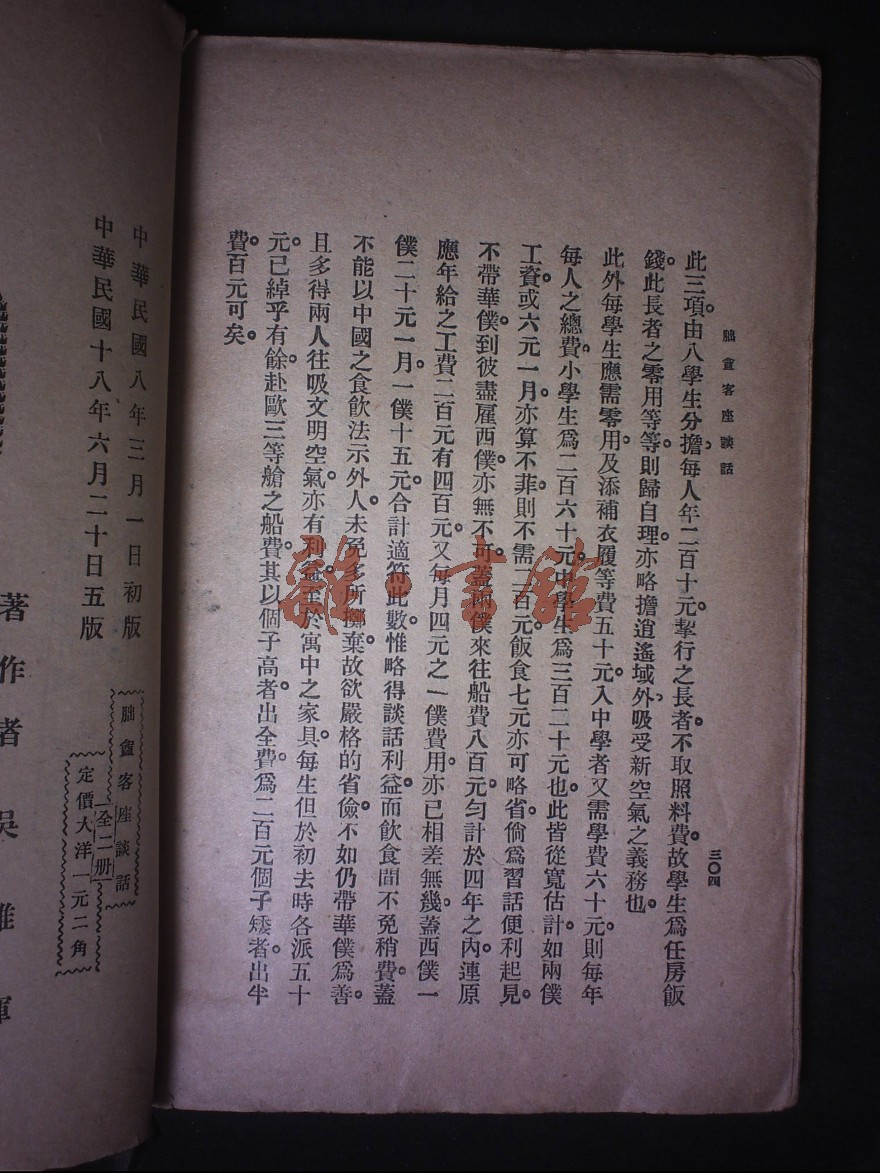 朏盦客座談話
三〇四
此三項。由八學生分擔。每人年二百十元。挈行之長者。不取照料費。故學生爲任房飯
錢。此長者之零用等等。則歸自理。亦略擔逍遙域外。吸受新空氣之義務也。
此外每學生應需零用。及添補衣履等費五十元。入中學者又需學費六十元。則每年
每人之總費。小學生爲二百六十元。中學生爲三百二十元也。此皆從寬估計。如兩僕
工資。或六元一月。亦算不菲。則不需二百元。飯食七元亦可略省。倘爲習話便利起見。
不帶華僕。到彼盡雇西僕。亦無不可。蓋兩僕來往船費八百元。勻計於四年之內。連原
應年給之工費二百元。有四百元。又每月四元之一僕費用。亦已相差無幾。蓋西僕一
僕二十元一月。一僕十五元。合計適符此數。惟略得談話利益。而飲食間不免稍費。蓋
不能以中國之食飲法示外人。未免多所擲棄。故欲嚴格的省儉。不如仍帶華僕爲善。
且多得兩人往吸文明空氣。亦有利益。至於寓中之家具。每生但於初去時各派五十
元。已綽乎有餘。赴歐三等艙之船費。其以個子高者。出全費。爲二百元。個子矮者。出半
費。百元可矣。
中華民國八年三月一日初版
中華民國十八年六月二十日五版
朏盦客座談話
全二册
定價大洋一元二角
著作者 吳稚暉
雜·書館